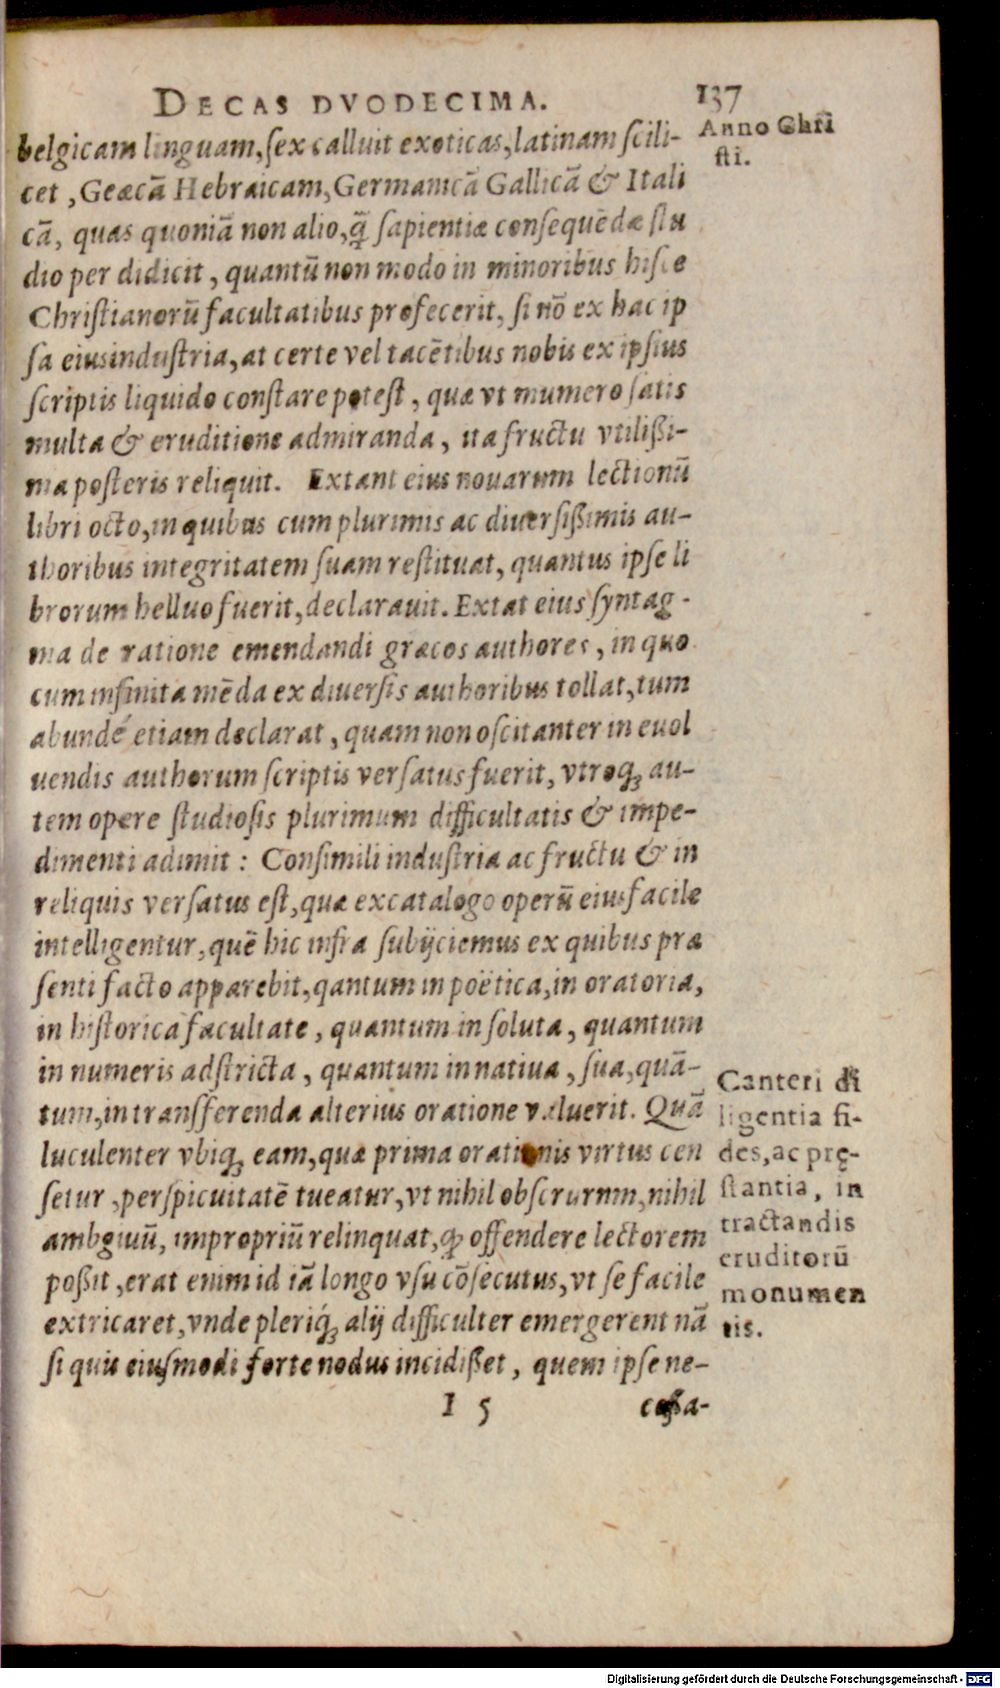 DECAS DVODECIMA. 137
Anno Chri
sti.
belgicam linguam, sex calluit exoticas, latinam scili-
cet , Geæcā Hebraicam, Germanicā Gallicā & Itali
cā, quas quoniā non alio, q̃ sapientiæ consequēdæ stu
dio per didicit , quantū non modo in minoribus hisce
Christianorū facultatibus profecerit, si nō ex hac ip
sa eius industria, at certe vel tacētibus nobis ex ipsius
scriptis liquido constare potest , quæ vt mumero satis
multa & eruditione admiranda , ita fructu vtilißi-
ma posteris reliquit. Extant eius nouarum lectionū
libri octo, in quibus cum plurimis ac diuersißimis au-
thoribus integritatem suam restituat, quantus ipse li
brorum helluo fuerit, declarauit. Extat eius syntag-
ma de ratione emendandi græcos authores , in quo
cum infinita mēda ex diuersis authoribus tollat, tum
abundé etiam declarat , quam non oscitanter in euol
uendis authorum scriptis versatus fuerit, vtroq; au-
tem opere studiosis plurimum difficultatis & impe-
dimenti adimit : Consimili industria ac fructu & in
reliquis versatus est, quæ ex catalogo operū eius facile
intelligentur, quē hic infra subijciemus ex quibus præ
senti facto apparebit, qantum in poëtica, in oratoria,
in historica facultate , quantum in soluta , quantum
in numeris adstricta , quantum in natiua , sua, quā-
tum, in transferenda alterius oratione valuerit. Quā
luculenter vbiq; eam, quæ prima orationis virtus cen
setur , perspicuitatē tueatur, vt nihil obscrurnm, nihil
ambgiuū, impropriū relinquat, qꝫ offendere lectorem
poßit , erat enim id iā longo vsu cōsecutus, vt se facile
extricaret, vnde pleriq́; alij difficulter emergerent nā
si quis eiusmodi forte nodus incidißet , quem ipse ne-
Canteri di
ligentia fi-
des, ac prę-
stantia, in
tractandis
eruditorū
monumen
tis.
I 5 ceßa-
Digitalisierung gefördert durch die Deutsche Forschungsgemeinschaft - DFG